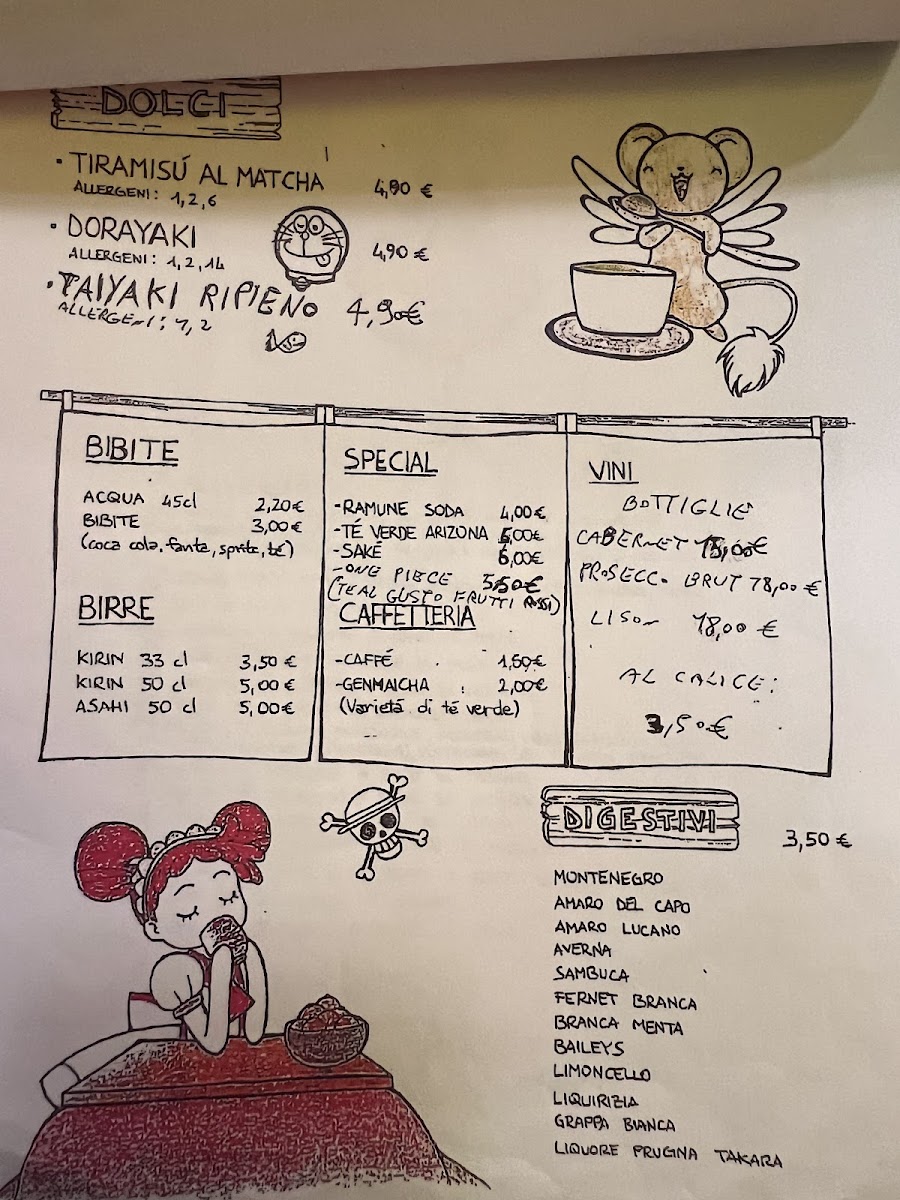 DOLCI
· TIRAMISÚ AL MATCHA 4,90 €
ALLERGENI: 1,2,6
· DORAYAKI 4,90 €
ALLERGENI: 1,2,14
· TAIYAKI RIPIENO 4,90€
ALLERGENI: 1,2
BIBITE
ACQUA 45cl 2,20€
BIBITE 3,00€
(coca cola, fanta, sprite, té)
BIRRE
KIRIN 33 cl 3,50 €
KIRIN 50 cl 5,00 €
ASAHI 50 cl 5,00€
SPECIAL
-RAMUNE SODA 4,00€
-TÉ VERDE ARIZONA 5,00€
-SAKÉ 6,00€
-ONE PIECE 3,50€
(TE AL GUSTO FRUTTI ROSSI)
CAFFETTERIA
-CAFFÉ 1,50€
-GENMAICHA 2,00€
(Varietá di té verde)
VINI
BOTTIGLIE
CABERNET 15,00€
PROSECCO BRUT 18,00 €
LISON 18,00 €
AL CALICE:
3,50€
DIGESTIVI 3,50 €
MONTENEGRO
AMARO DEL CAPO
AMARO LUCANO
AVERNA
SAMBUCA
FERNET BRANCA
BRANCA MENTA
BAILEYS
LIMONCELLO
LIQUIRIZIA
GRAPPA BIANCA
LIQUORE PRUGNA TAKARA